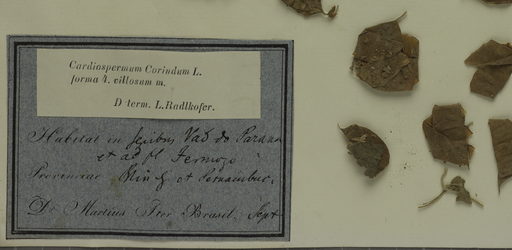 Cardiospermum Corindum L.
forma 4. villosum m.
Determ. L. Radlkofer.
Habitat in sepibus Vao do Parana
et ad fl
Provinciae Min G et Pernambuc.
Dr. Martius Iter Brasil. Sept